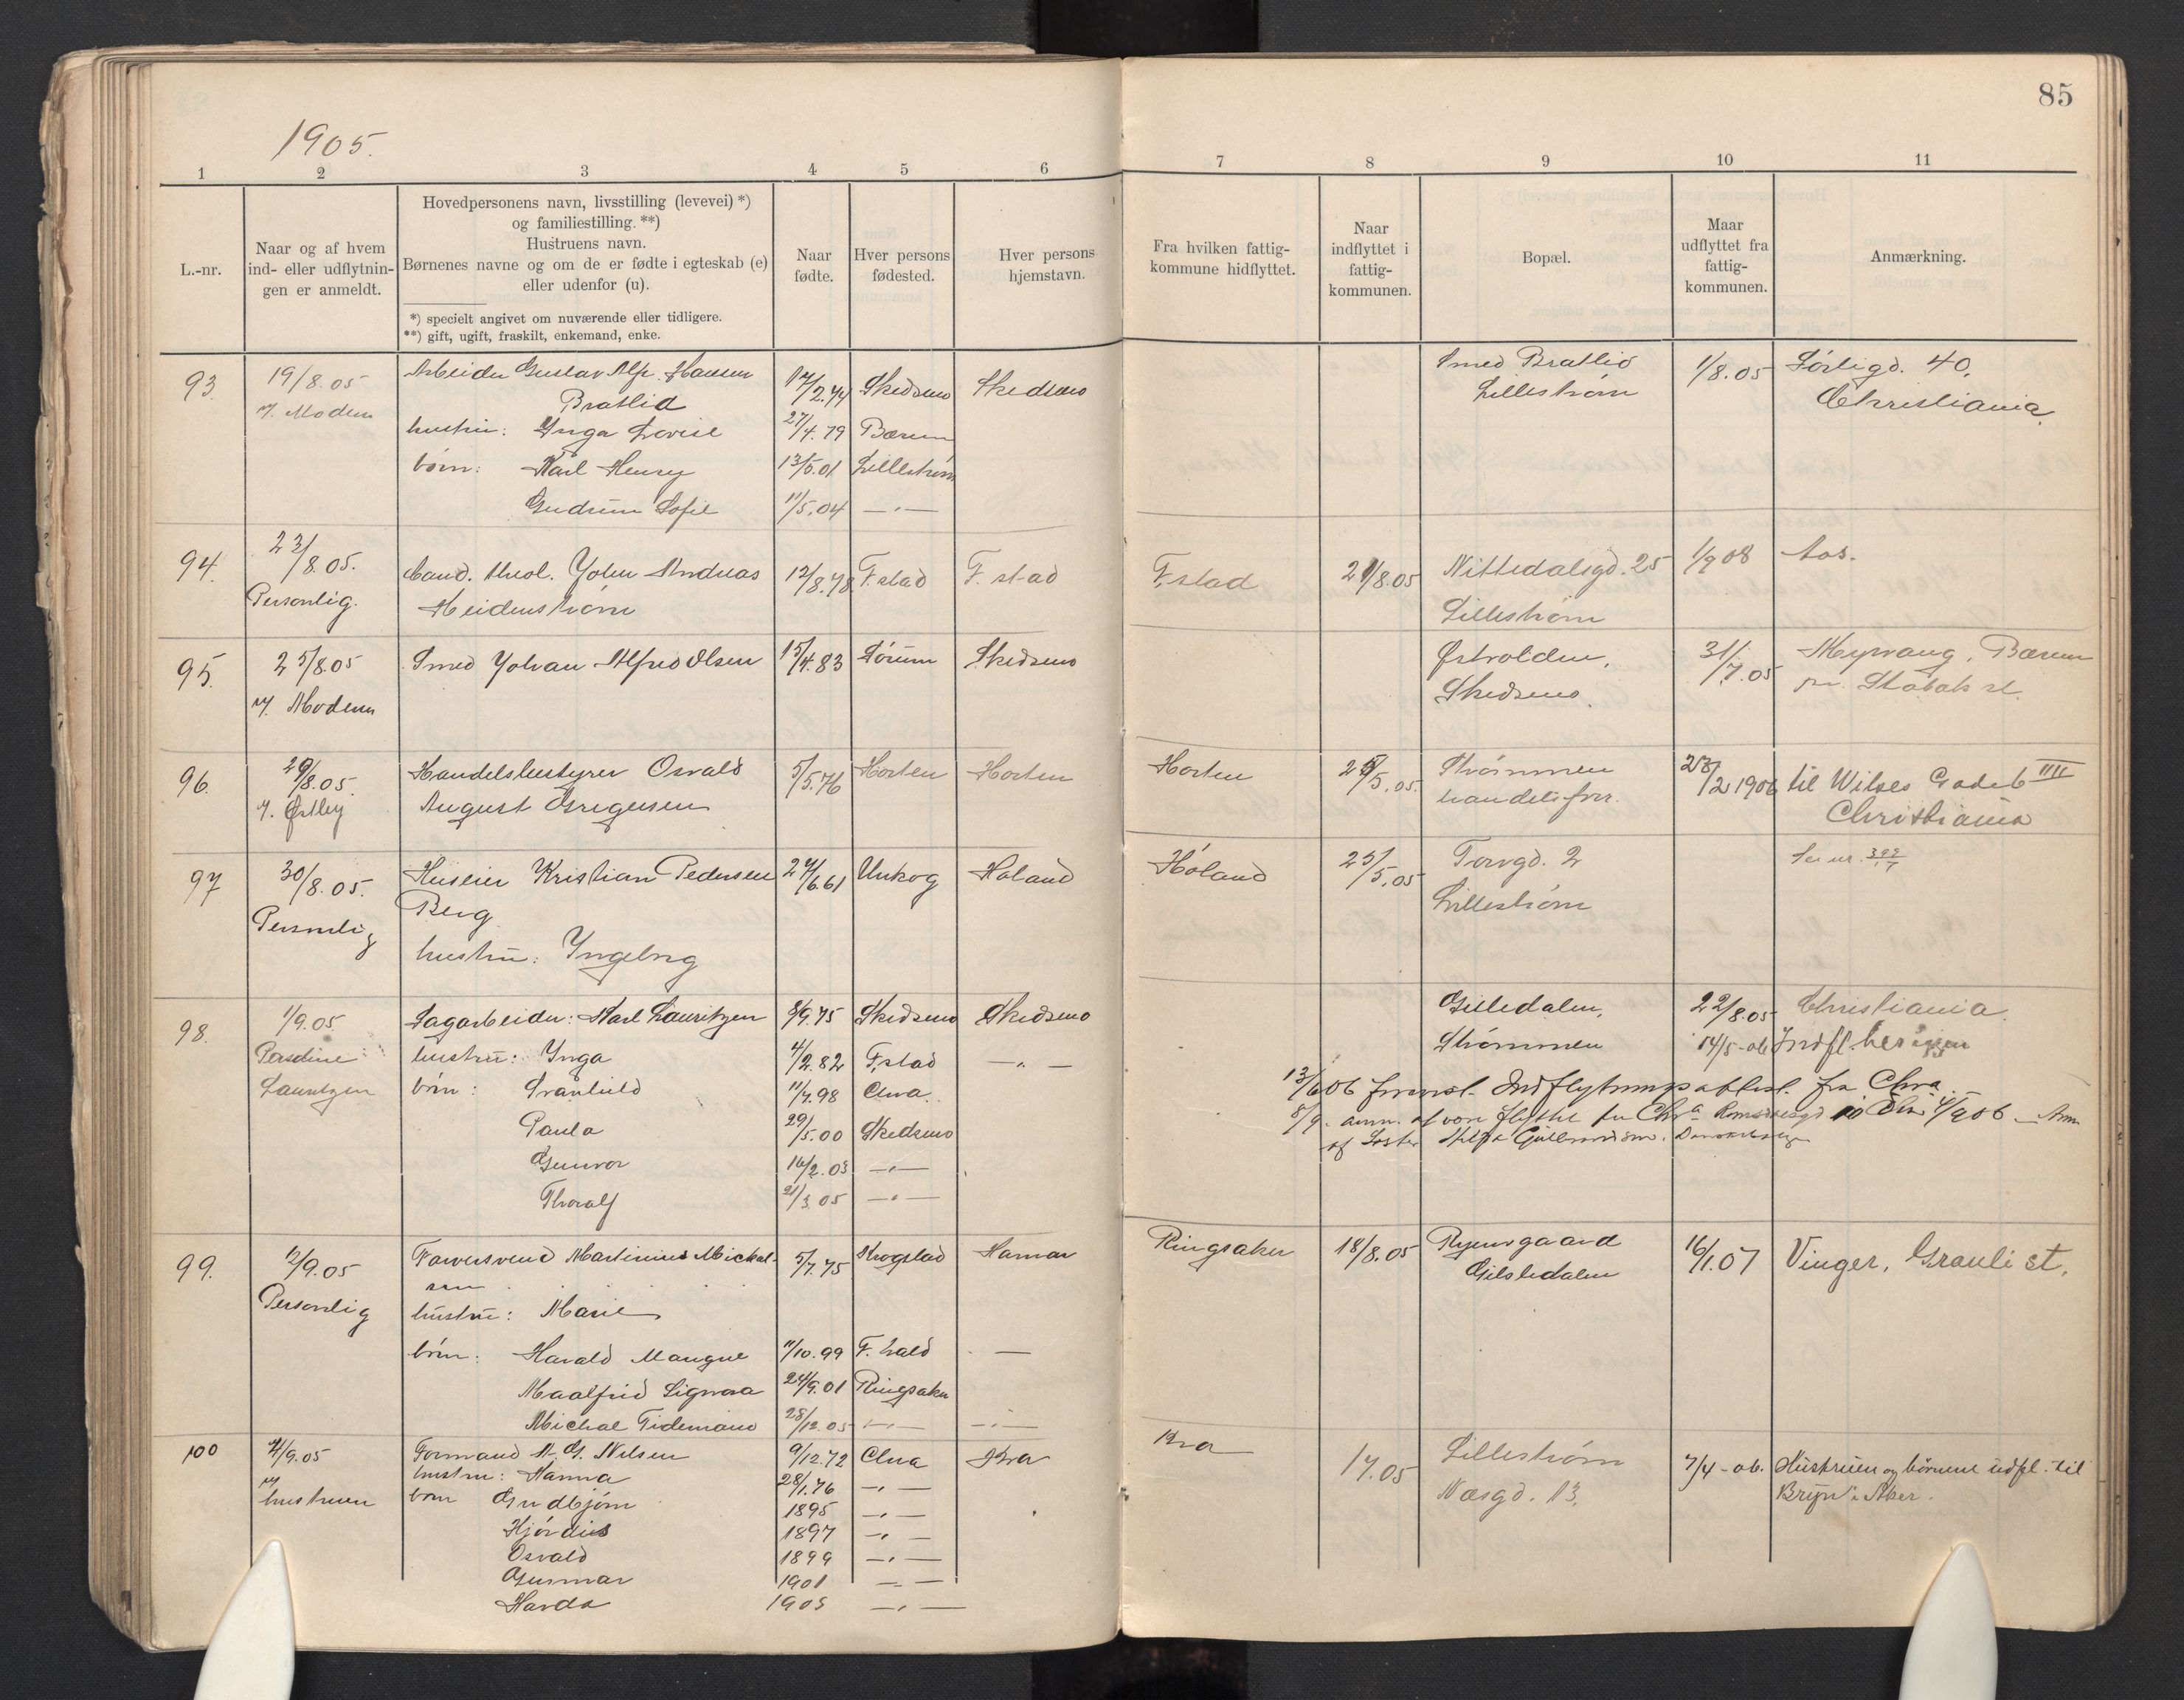 85
1905.
1 2 3 4 5 6 7 8 9 10 11
L.-nr.
Naar og af hvem
ind- eller udflytnin-
gen er anmeldt.
Hovedpersonens navn, livsstilling (levevei) *)
og familiestilling. **)
Hustruens navn.
Børnenes navne og om de er fødte i egteskab (e)
eller udenfor (u).
*) specielt angivet om nuværende eller tidligere.
**) gift, ugift, fraskilt, enkemand, enke.
Naar
fødte.
Hver persons
fødested.
Hver persons
hjemstavn.
Fra hvilken fattig-
kommune hidflyttet.
Naar
indflyttet i
fattig-
kommunen.
Bopæl.
Maar
udflyttet fra
fattig-
kommunen.
Anmærkning.
93. 19/8.05 Arbeider Gustav Alfr. Hansen 17/2.74 Skedsmo Skedsmo Smed Bratlid 1/8.05 Sørligd. 40,
v. Modem Bratlid Lillestrøm Christiania.
hustru: Inga Lovise 27/4.79 Bærum
børn: Karl Henry 13/5.01 Lillestrøm
Gudrun Sofie 11/5.04 —"—
94. 23/8.05. Cand. theol. John Andreas 12/8.78 F.stad F.stad F.stad 21/8.05 Nittedalsgd. 25 1/9 08 Aas.
Personlig. Heidenstrøm Lillestrøm
95. 25/8.05 Smed Johan Alfred Olsen 15/4.83 Sørum Skedsmo Østvolden, 31/7.05 Myrvang, Bærum
v. Modem Skedsmo. pr. Stabæk st.
96. 29/8.05. Handelsbestyrer Osvald 5/5.76 Horten Horten Horten 25/5.05. Strømmen 28/2 1906 til Wilses Gade 6 IIII
v. Østby August Gregersen handelsfor. Christiania
97 30/8.05. Huseier Kristian Pedersen 24/6.61 Urskog Høland Høland 25/5.05 Torvgd. 2
Personlig Berg Lillestrøm
hustru: Ingebrg
98. 1/9.05. Sagarbeider: Karl Lauritzen 8/9.75 Skedsmo Skedsmo Gilledalen, 22/8.05 Christiania.
hustru: Inga 4/2.82 F.stad —"— Strømmen 14/5-06 Indfl. her igjen
Lauritzen børn: Svanhild 11/7.98 Chra.
13/6 06 Indflytningsattest. fra Chra.
Paula 29/5.00 Skedsmo
Gunvor 16/2.03 —"—
Thoralf 21/3.05 —"—
99. 12/9.05 Farversvend Martinius Mickel- 5/7.75 Krogstad Hamar Ringsaker 18/8.05 Ryensgaard 16/1.07 Vinger, Granli st.
Personlig sen Gilsledalen
hustru: Marie
børn: Harald Mangne 11/10.99 F.hald —
Maalfrid Signora 24/9.01 Ringsaker
Michal Tidemand 28/12.05 —"— —"—
100 4/9.05 Formand N. G. Nilsen 9/12.72 Chra Kra Kra 17.05 Lillestrøm 7/4-06. Hustruen og børnene udfl. til
v. hustru: Hanna 28/1.76 —"— Næsgd. 13. Bryn i Aker.
hustruen børn Gudbjørn 1895 —"—
Hjørdis 1897 —"—
Osvald 1899 —"—
Gunnar 1901 — —
Harda 1905 —"—